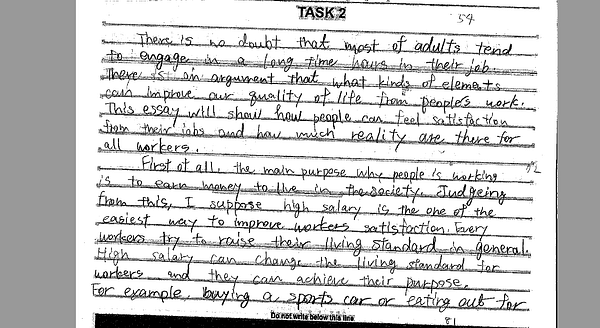 TASK 2
54
There is no doubt that most of adults tend
to engage in a long time hours in their job.
There is an argument that what kinds of elements
can improve our quality of life from people's work.
This essay will show how people can feel satisfaction
from their jobs and how much reality are there for
all workers.
First of all, the main purpose why people is working
is to earn money to live in the society. Judgeing
from this, I suppose high salary is the one of the
easiest way to improve workers satisfaction. Every
workers try to raise their living standard in general.
High salary can change the living standard for
workers and they can achieve their purpose.
For example, buying a sports car or eating out for
Do not write below this line
81